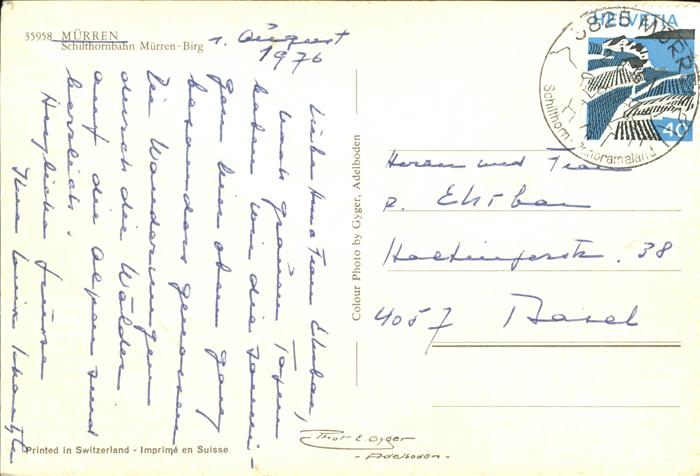 35958 MÜRREN
Schilthornbahn Mürren - Birg
1. August
1976
Lieber Herr Frau Ehrbar,
nach grauen Tagen
haben wir die sonni-
gen hier oben ganz
besonders genossen
Die Wanderungen
durch die Wälder
auf die Alpen sind
herrlich.
Herzliche Grüsse
Ihre
Printed in Switzerland - Imprimé en Suisse
Colour Photo by Gyger, Adelboden
Phot E. Gyger
- Adelboden -
HELVETIA
40
3825 MÜRREN
Schilthorn-Panoramaland
Herrn und Frau
P. Ehrbar
Haltingerstr. 38
4057 Basel